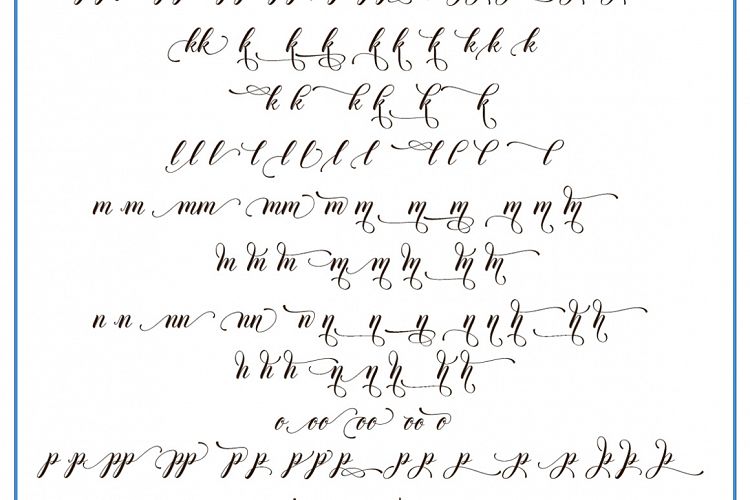 kk k k k k k k k k k
k k k k k k
l l l l l l l l l l l l
m m mm mm m m m m m m m
m m m m m m m m
n n nn nn n n n n n n n n n
n n n n n n n n
o oo oo oo o
p p pp pp p p p p p p p p p p p p p